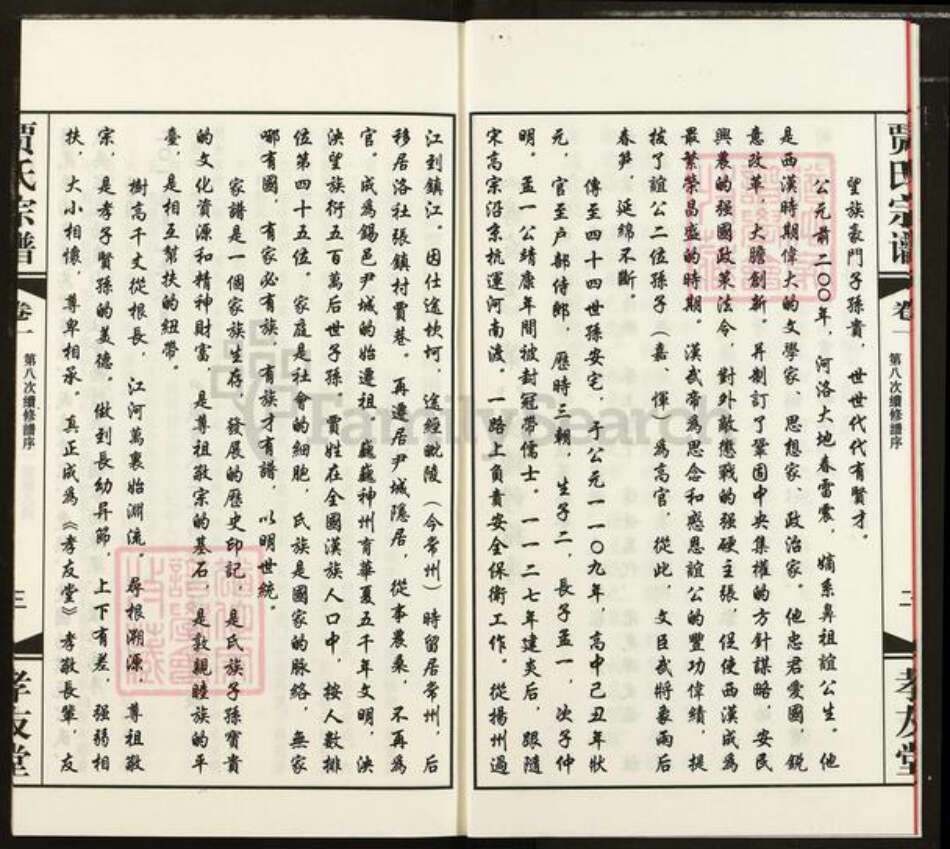 賈氏宗譜
卷一
第八次續修譜序
二
孝友堂
望族豪門子孫貴，世世代代有賢才。
公元前二〇〇年，河洛大地春雷震，嫡系鼻祖誼公生。他
是西漢時期偉大的文學家、思想家、政治家。他忠君愛國，銳
意改革，大膽創新。并制訂了鞏固中央集權的方針謀略，安民
興農的强國政策法令，對外敢懲戰的强硬主張，促使西漢成為
最繁榮昌盛的時期。漢武帝為思念和感恩誼公的豐功偉績，提
拔了誼公二位孫子（嘉、惲）為高官，從此，文臣武將象雨后
春笋，延綿不斷。
傳至四十四世孫安宅，于公元一一〇九年，高中己丑年狀
元，官至户部侍郎，歷時三朝，生子二，長子孟一，次子仲
明。孟一公靖康年間被封冠帶儒士，一一二七年建炎后，跟隨
宋高宗沿京杭運河南渡。一路上負責安全保衛工作。從揚州過
江到鎮江。因仕途坎坷，途經毗陵（今常州）時留居常州，后
移居洛社張鎮村賈巷。再遷居尹城隱居，從事農桑，不再為
官。成為錫邑尹城的始遷祖。巍巍神州育華夏五千年文明，泱
泱望族衍五百萬后世子孫。賈姓在全國漢族人口中，按人數排
位第四十五位。家庭是社會的細胞，氏族是國家的脉絡，無家
哪有國，有家必有族，有族才有譜，以明世統。
家譜是一個家族生存、發展的歷史印記，是氏族子孫寶貴
的文化資源和精神財富，是尊祖敬宗的基石，是敦親睦族的平
臺，是相互幫扶的紐帶。
樹高千丈從根長，江河萬裏始淵流。尋根溯源，尊祖敬
宗，是孝子賢孫的美德。做到長幼昇節，上下有差，强弱相
扶，大小相懷，尊卑相承。真正成為《孝友堂》孝敬長輩，友
賈氏宗譜
卷一
第八次續修譜序
三
孝友堂
FamilySearch